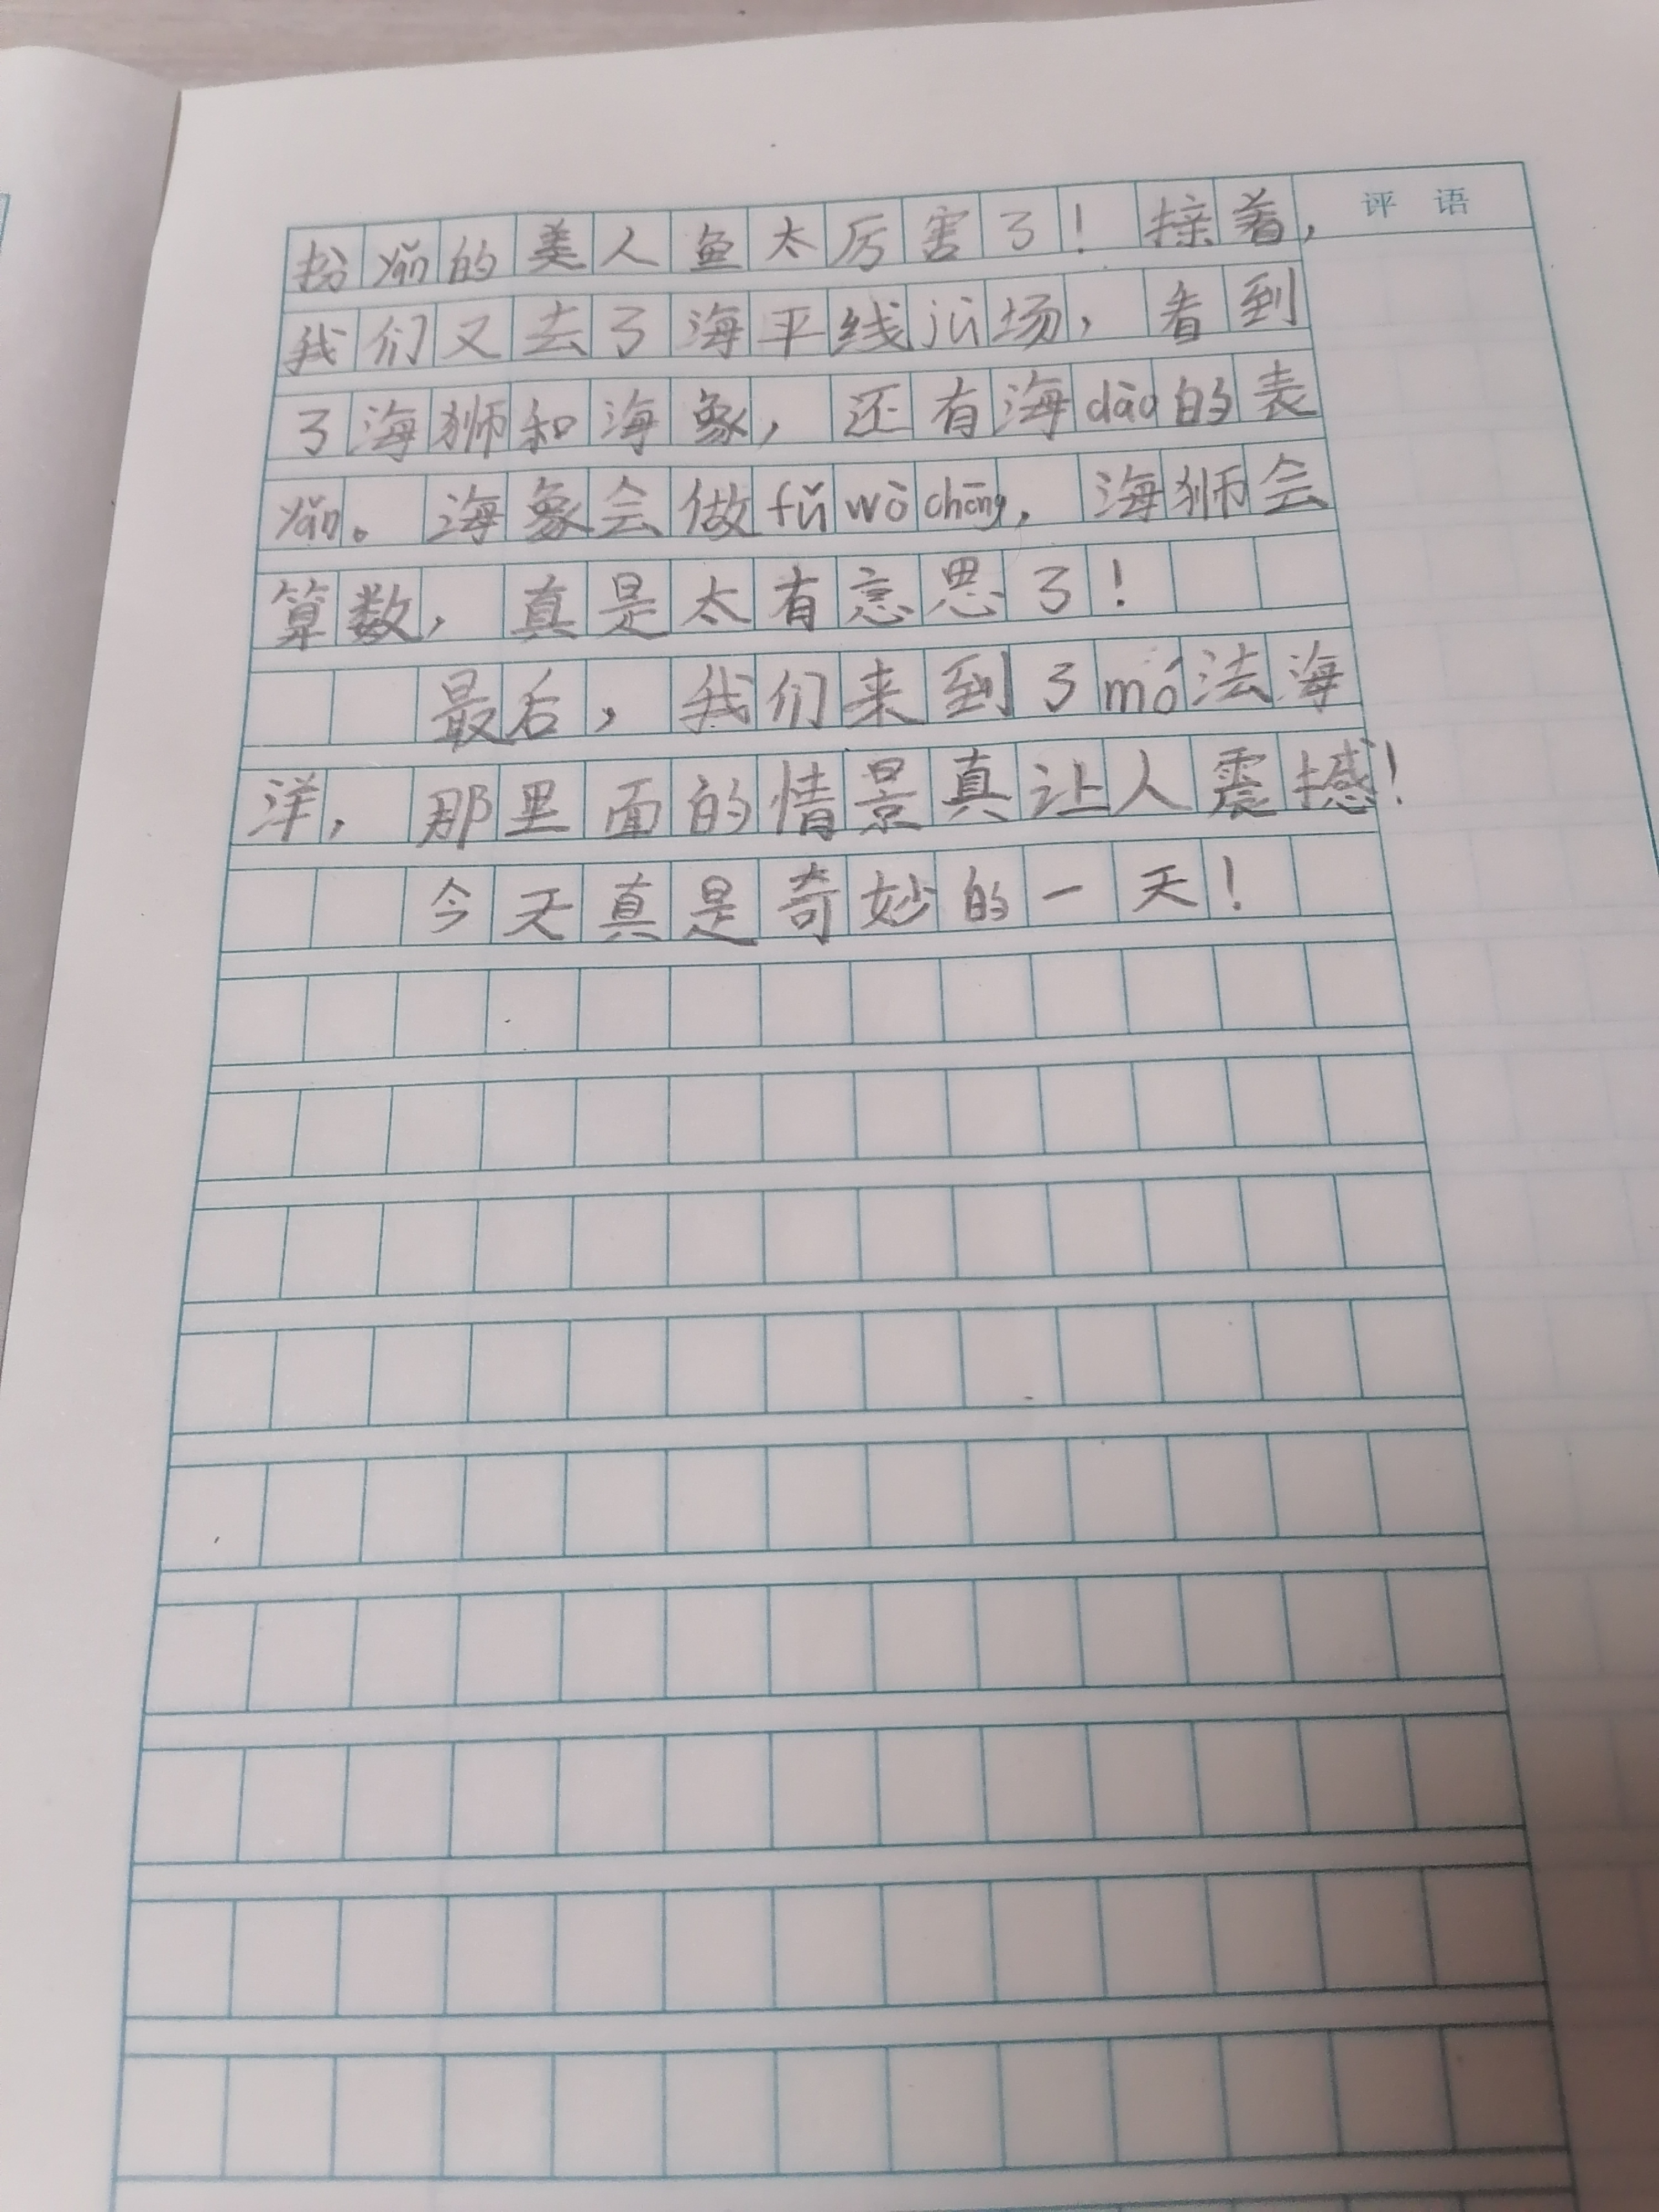 评 语
扮yǎn的美人鱼太厉害了！接着，
我们又去了海平线jù场，看到
了海狮和海象，还有海dào的表
yǎn。海象会做fǔ wò chēng，海狮会
算数，真是太有意思了！
最后，我们来到了mó法海
洋，那里面的情景真让人震撼！
今天真是奇妙的一天！